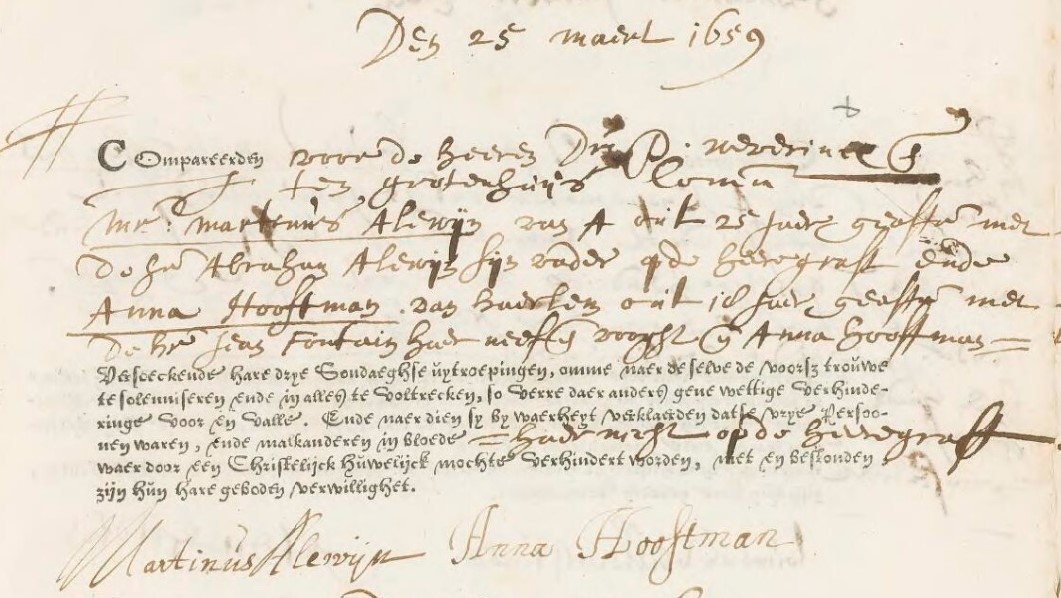 Den 25 maert 1659
Compareerden voor de heeren
ten grotenhuijs Com
Mr. Martinus Alewijn van A out 25 Jaer geasst met
de hr Abraham Alewijn sijn vader op de heeregraft ende
Anna Hooftman van Haerlem out 18 Jaer geasst met
de hr Jean Fontain haer neeff en voocht en Anna Hooftman
Versoeckende hare drye Sondaeghse uytroepingen, omme naer de selve de voorsz trouwe
te solenniseren ende in alles te voltrecken, so verre daer anders gene wettige verhinde-
ringe voor en valle. Ende naer dien sy by waerheyt verklaerden datse vrye Persoo-
nen waren, ende malkanderen in bloede haer nicht op de heeregraft
waer door een Christelijck Huwelijck mochte verhindert worden, niet en bestonden,
zijn hun hare geboden verwillighet.
Martinus Alewijn Anna Hooftman